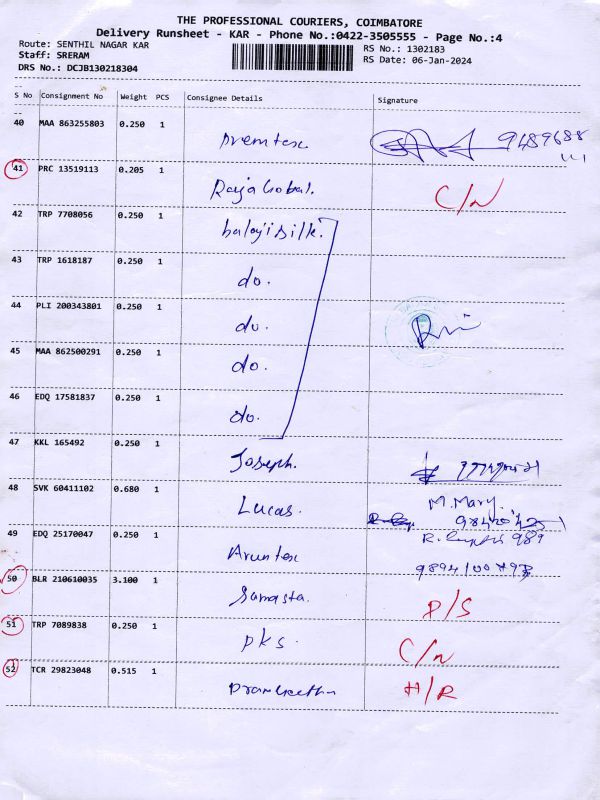 THE PROFESSIONAL COURIERS, COIMBATORE
Delivery Runsheet - KAR - Phone No.:0422-3505555 - Page No.:4
Route: SENTHIL NAGAR KAR
RS No.: 1302183
Staff: SRERAM
RS Date: 06-Jan-2024
DRS No.: DCJB130218304
S No Consignment No Weight PCS Consignee Details Signature
40 MAA 863255803 0.250 1
41 PRC 13519113 0.205 1 C/N
42 TRP 7708056 0.250 1 balaji silk.
43 TRP 1618187 0.250 1 do.
44 PLI 200343801 0.250 1 do.
45 MAA 862500291 0.250 1 do.
46 EDQ 17581837 0.250 1 do.
47 KKL 165492 0.250 1 Joseph.
48 SVK 60411102 0.680 1 Lucas. M. Mary.
49 EDQ 25170047 0.250 1 Aruntex
50 BLR 210610035 3.100 1 Samasta. D/S
51 TRP 7089838 0.250 1 PKS. C/N
52 TCR 29823048 0.515 1 H/R